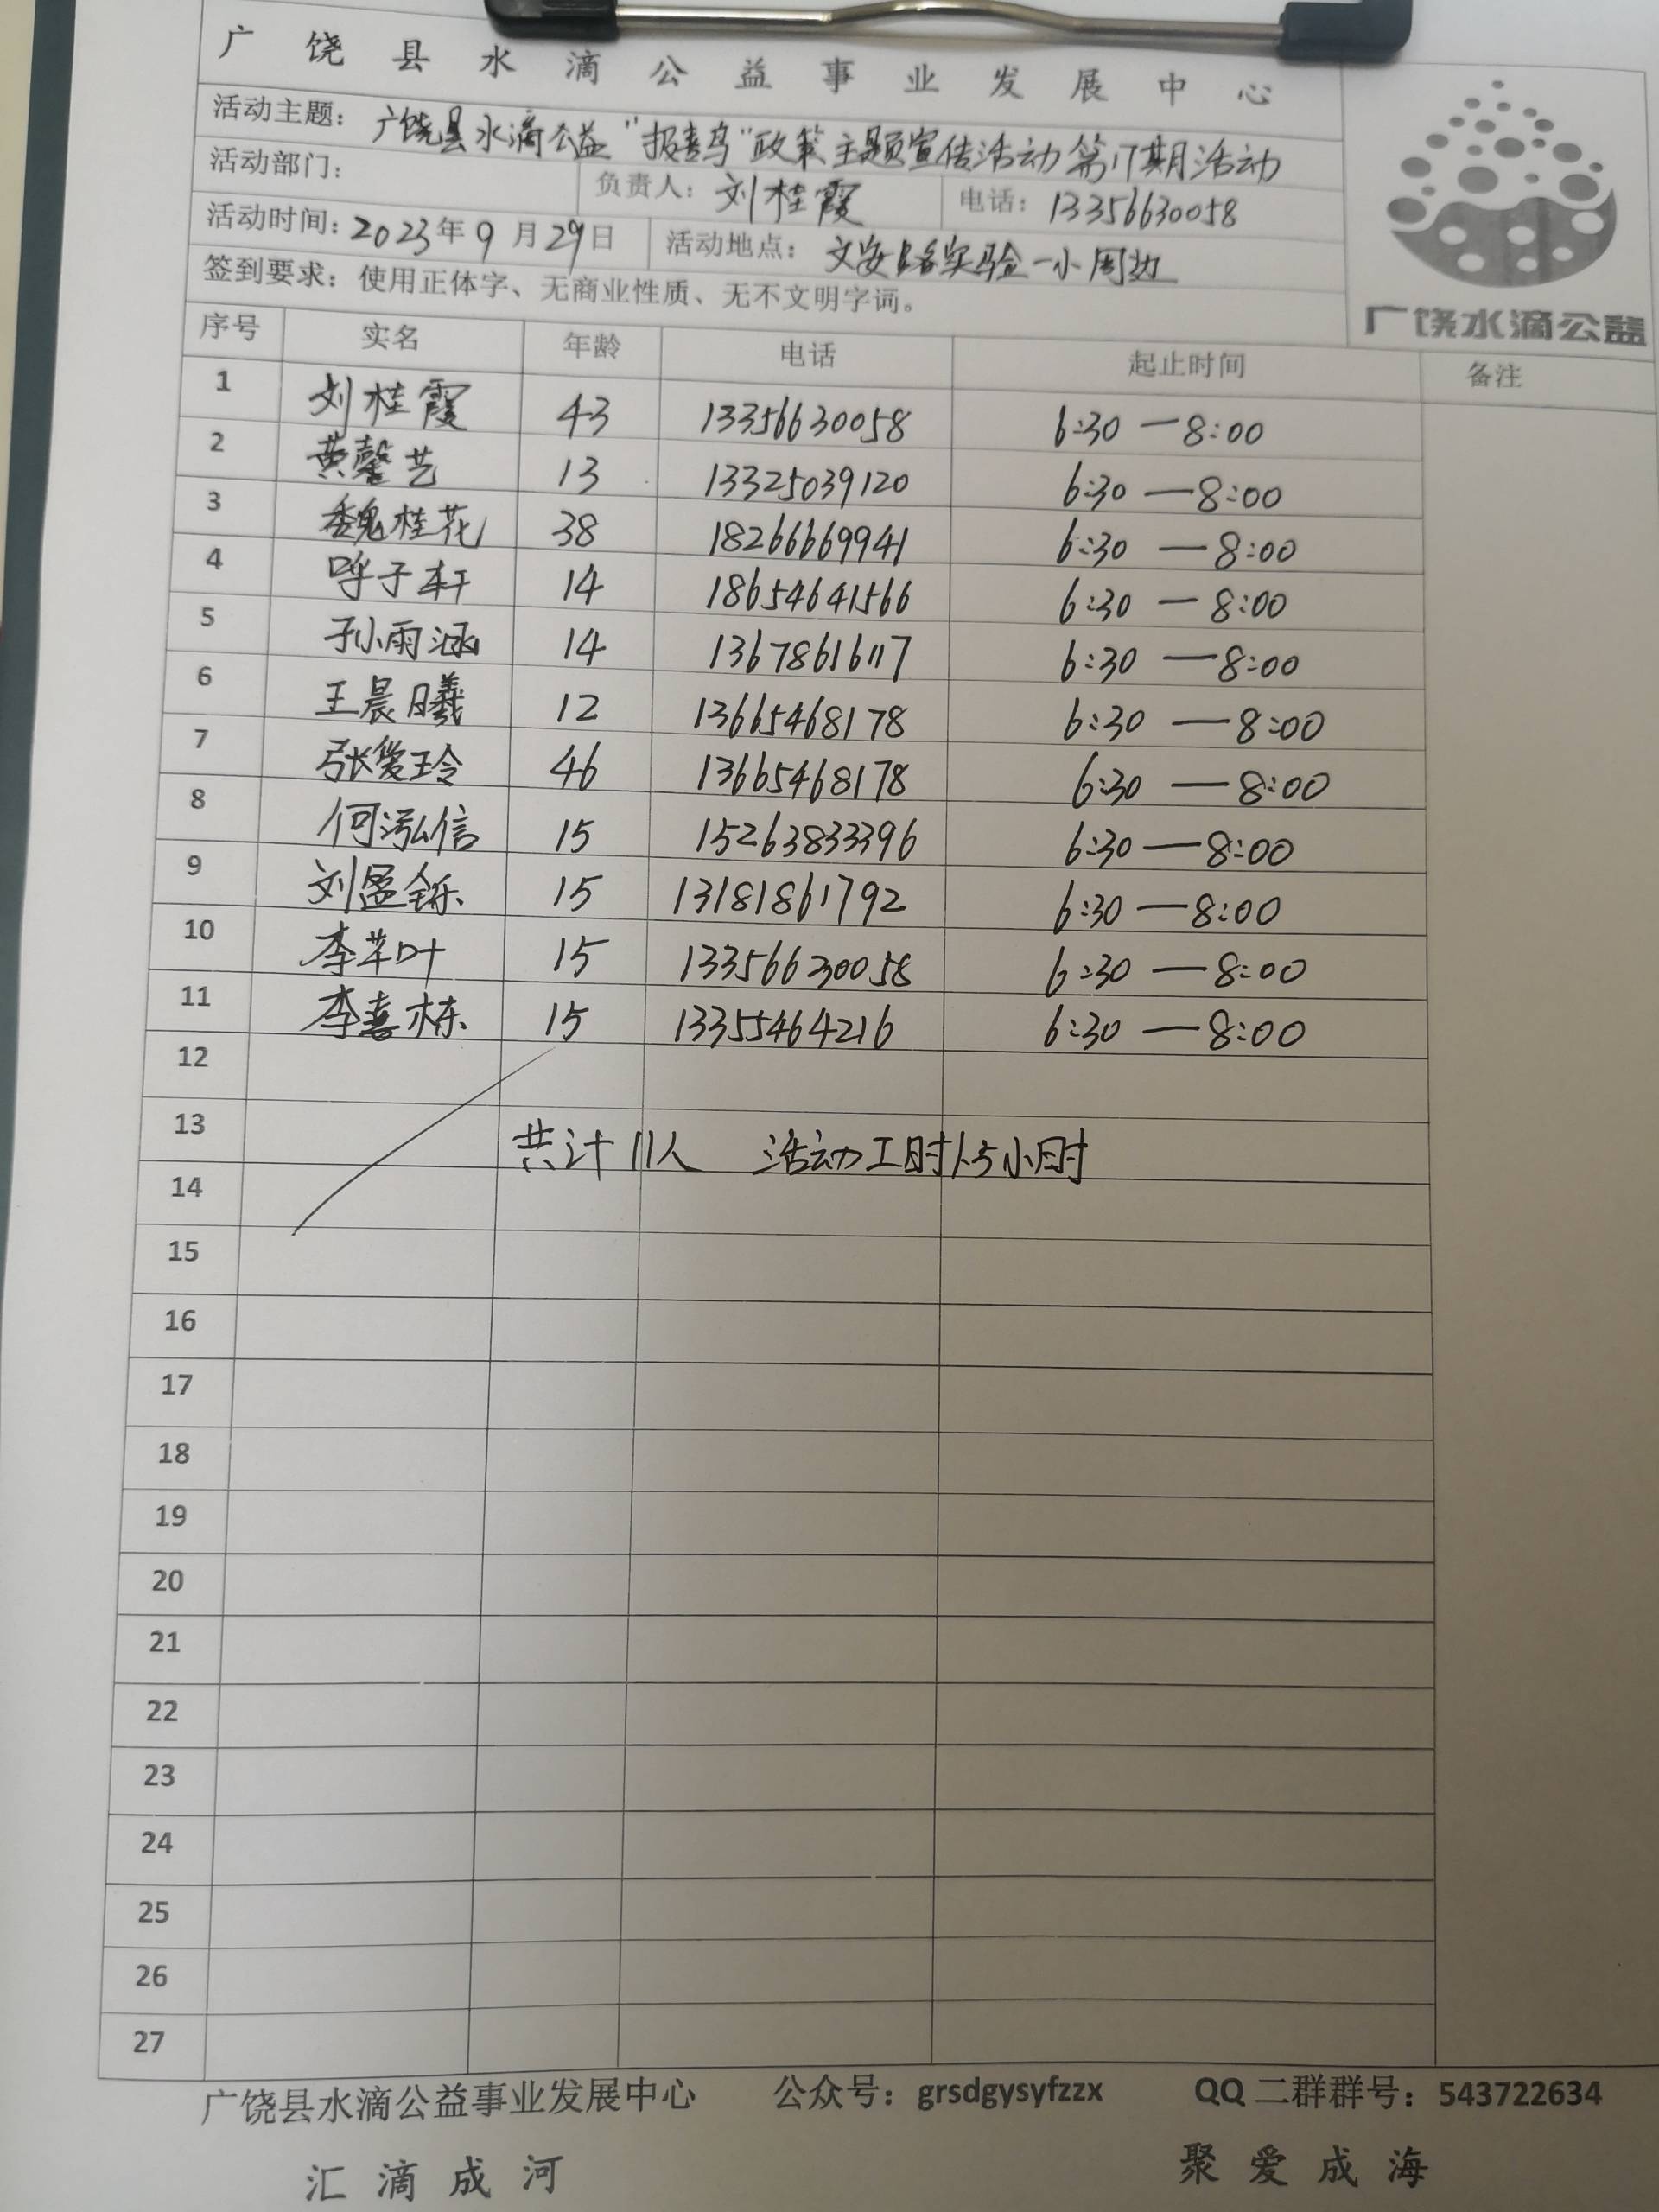 广饶县水滴公益事业发展中心
活动主题：广饶县水滴公益"报喜鸟"政策主题宣传活动第17期活动
活动部门： 负责人：刘桂霞 电话：13356630058
活动时间：2023年9月29日 活动地点：文安路实验一小周边
签到要求：使用正体字、无商业性质、无不文明字词。
广饶水滴公益
序号 实名 年龄 电话 起止时间 备注
1 刘桂霞 43 13356630058 6:30—8:00
2 黄馨艺 13 13325039120 6:30—8:00
3 魏桂花 38 18266669941 6:30—8:00
4 呼子轩 14 18654641566 6:30—8:00
5 孙雨涵 14 13678616117 6:30—8:00
6 王晨曦 12 13665468178 6:30—8:00
7 张爱玲 46 13665468178 6:30—8:00
8 何泓信 15 15263833396 6:30—8:00
9 刘盈铄 15 13181861792 6:30—8:00
10 李苹叶 15 13356630058 6:30—8:00
11 李喜栋 15 13355464216 6:30—8:00
12
13 共计11人 活动工时1.5小时
14
15
16
17
18
19
20
21
22
23
24
25
26
27
广饶县水滴公益事业发展中心 公众号：grsdgysyfzzx QQ二群群号：543722634
汇滴成河 聚爱成海